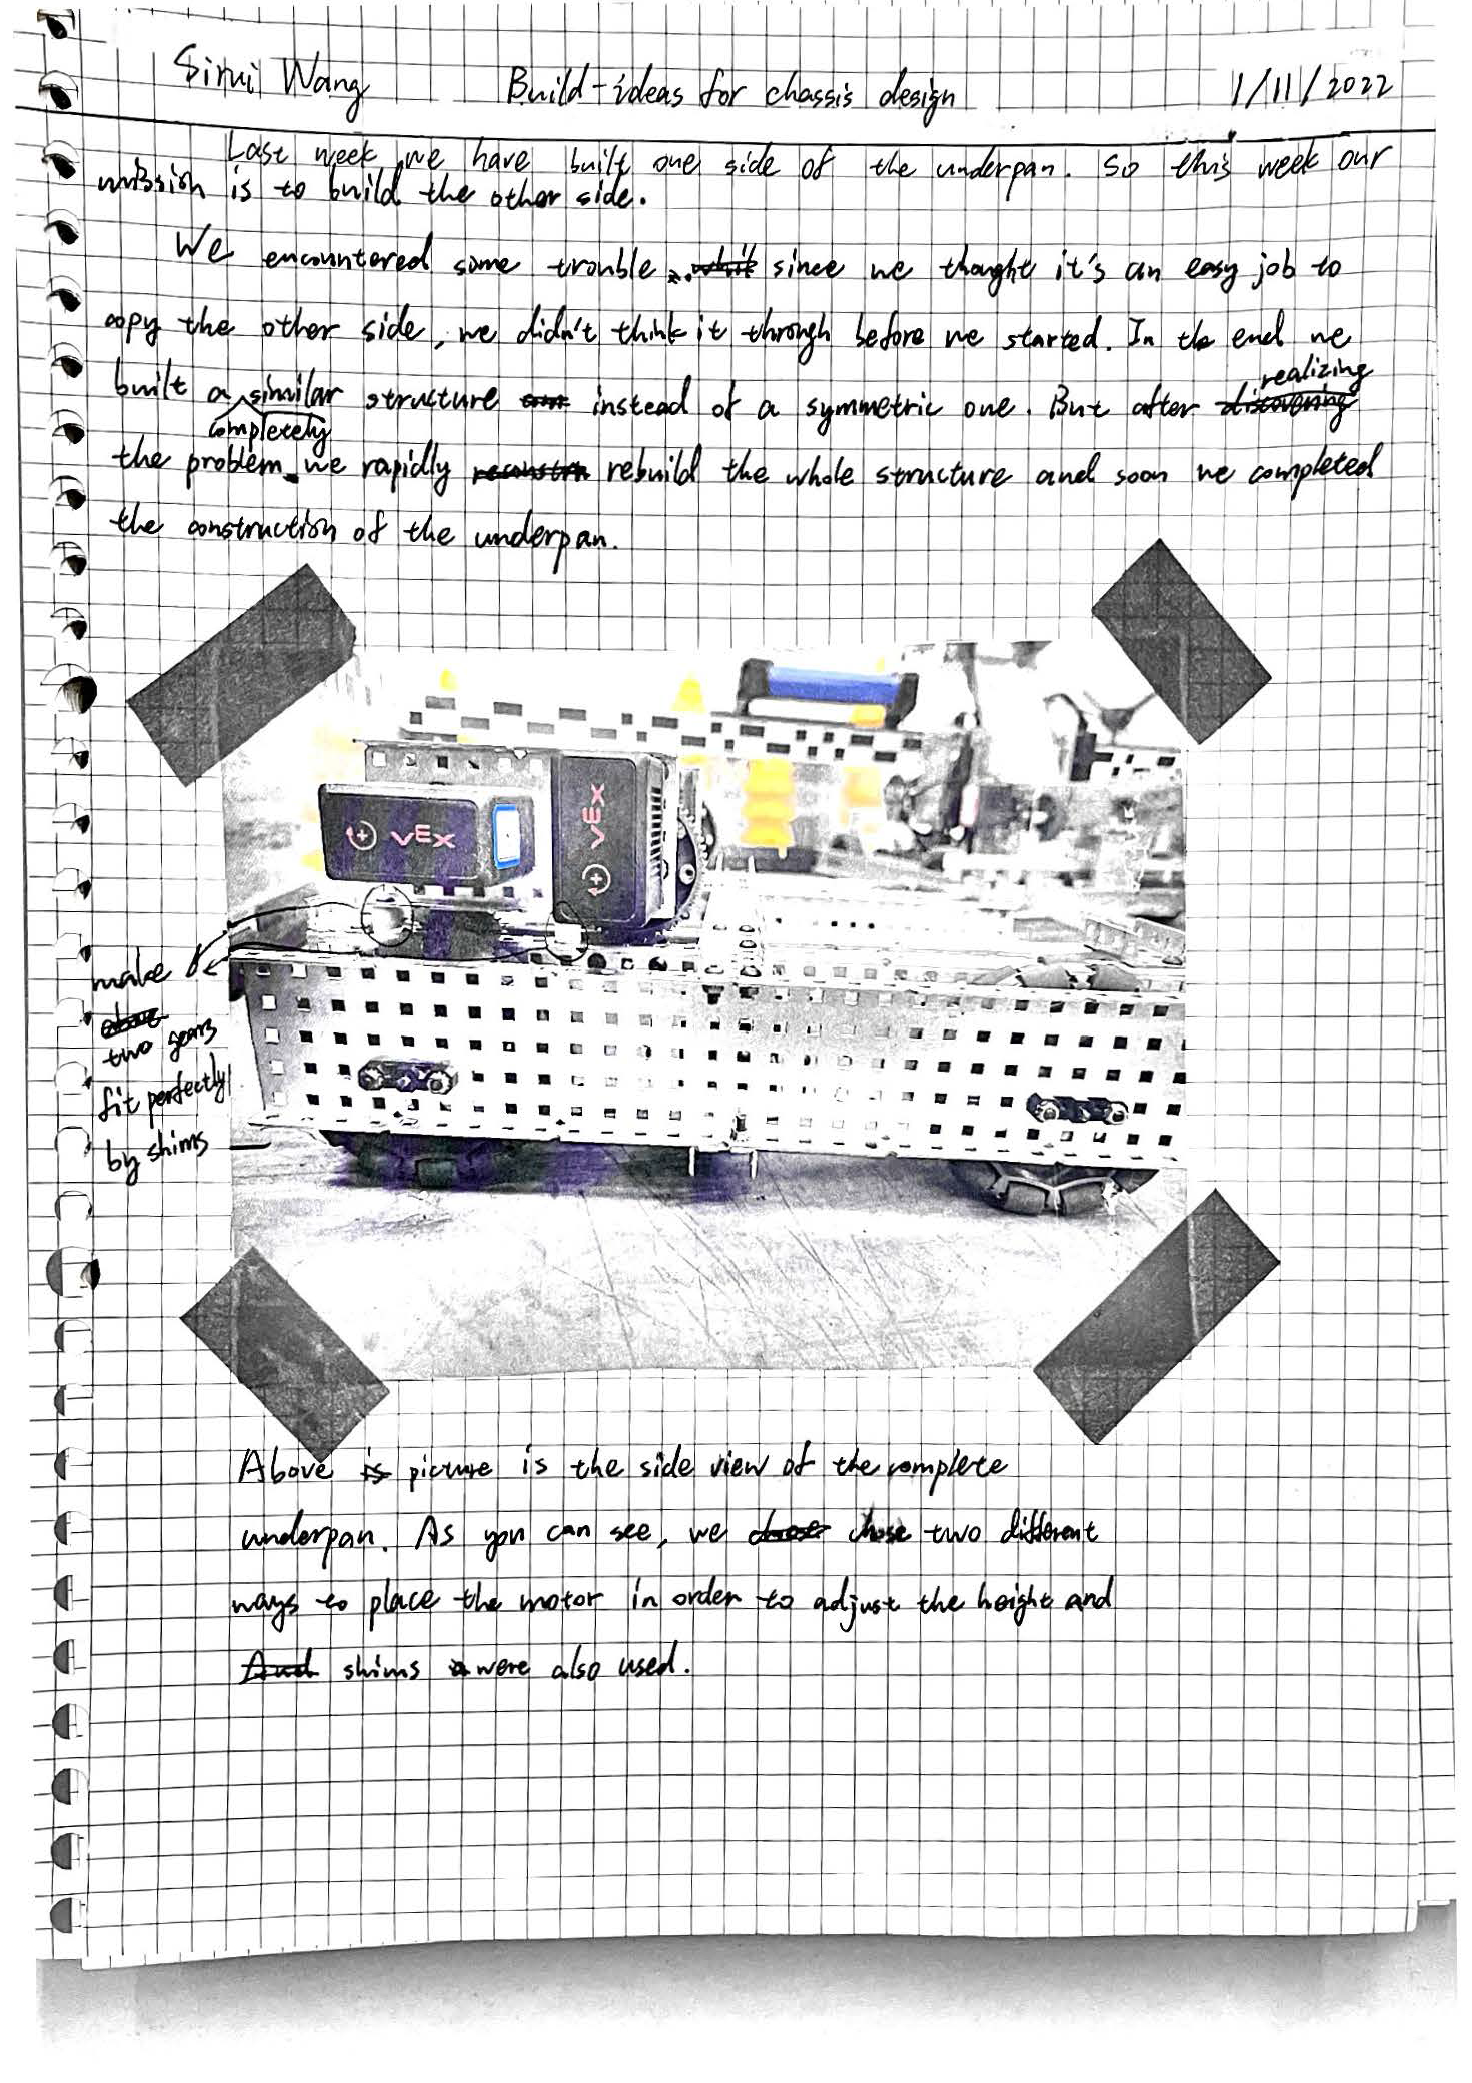 Sirui Wang Build-ideas for chassis design 1/11/2022
Last week we have built one side of the underpan. So this week our
mission is to build the other side.
We encountered some trouble. since we thought it's an easy job to
copy the other side, we didn't think it through before we started. In the end we
realizing
built a similar structure instead of a symmetric one. But after discovering
completely
the problem we rapidly reconstru rebuild the whole structure and soon we completed
the construction of the underpan.
VEX
VEX
make
two gears
fit perfectly
by shims
Above is picture is the side view of the complete
underpan. As you can see, we chose two different
ways to place the motor in order to adjust the height and
And shims were also used.